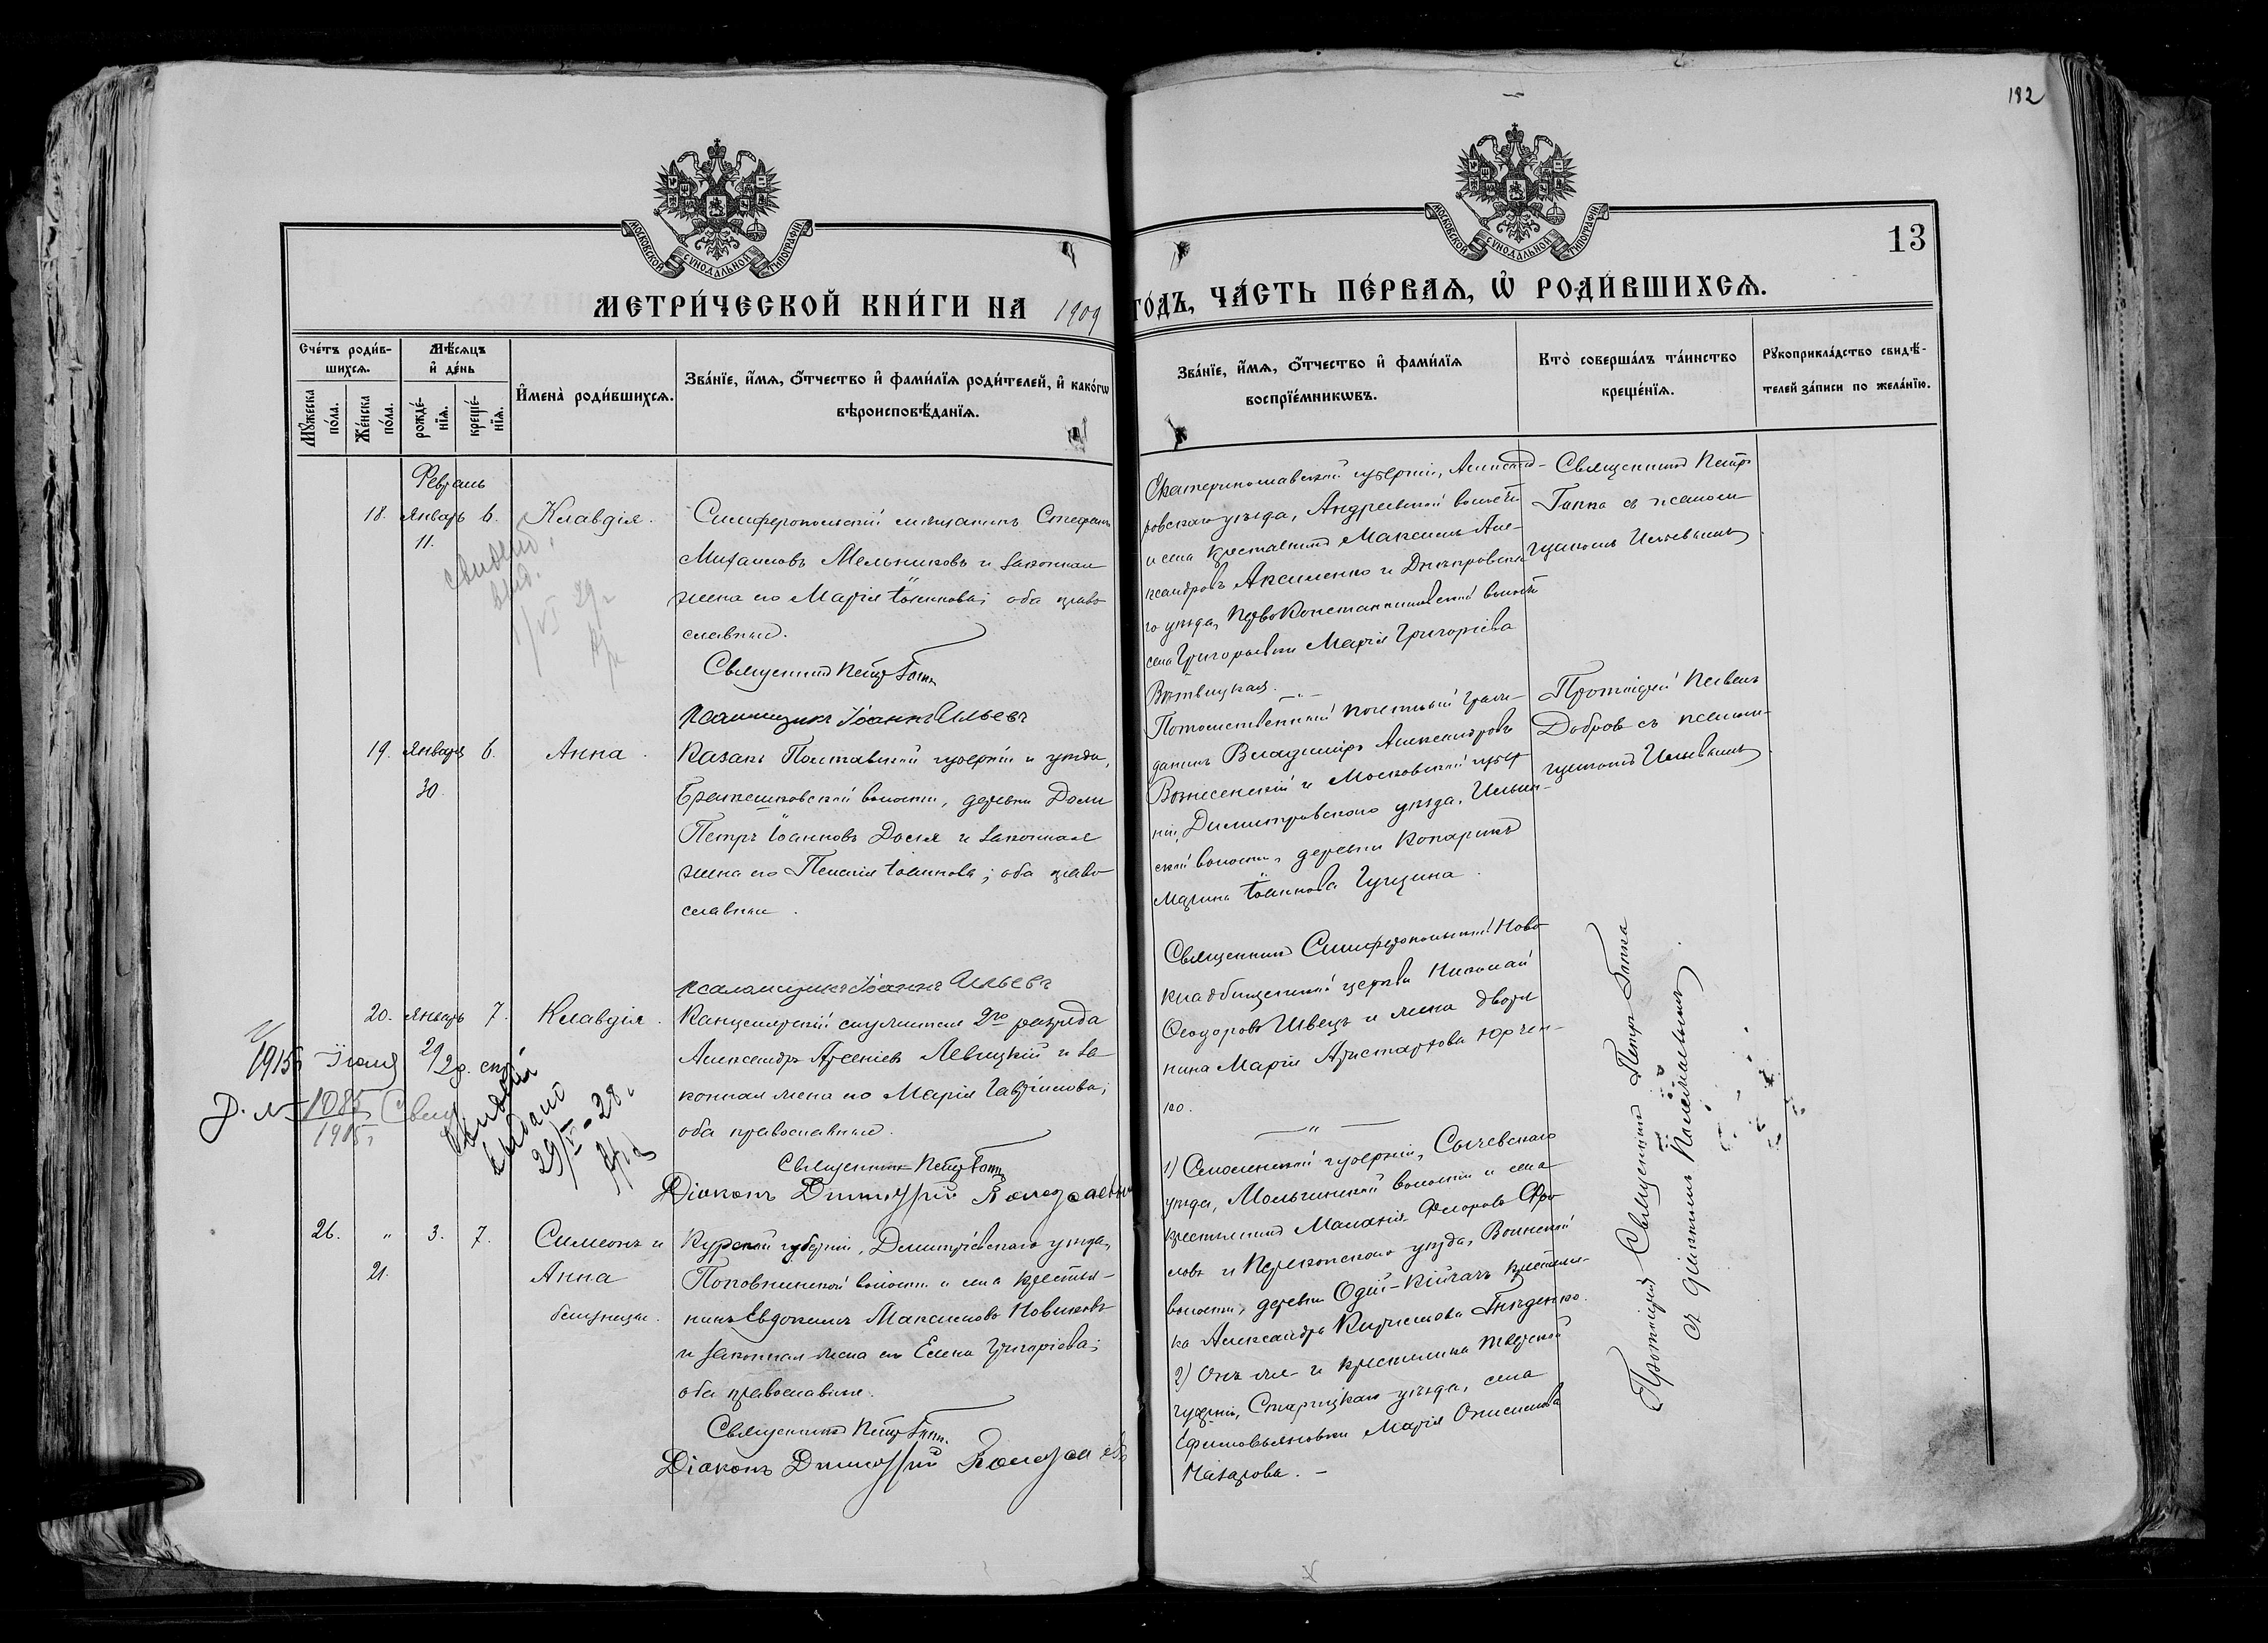 182
МОСКОВСКОЙ СѴНОДАЛЬНОЙ ТИПОГРАФІИ
МОСКОВСКОЙ СѴНОДАЛЬНОЙ ТИПОГРАФІИ
13
МЕТРИ́ЧЕСКОЙ КНИ́ГИ НА 1909 ГО́ДЪ, ЧА́СТЬ ПЕ́РВАѦ, Ѡ҆ РОДИ́ВШИХСѦ.
Сче́тъ роди́в-
шихсѧ.
Мꙋ́жеска по́ла.
Же́нска по́ла.
Мѣ́сѧцъ и҆ де́нь
рожде́-нїѧ.
креще́-нїѧ.
И҆мена̀ роди́вшихсѧ.
Зва́нїе, и҆́мѧ, ѻ҆́тчество и҆ фами́лїѧ роди́телей, и҆ како́гѡ
вѣроисповѣ́данїѧ.
Зва́нїе, и҆́мѧ, ѻ҆́тчество и҆ фами́лїѧ
воспрїе́мникѡвъ.
Кто̀ соверша́лъ та́инство
креще́нїѧ.
Рꙋкоприкла́дство свидѣ́-
телей за́писи по жела́нїю.
Февраль
18. Январь 6. Клавдія.
11.
Симферопольскій мѣщанинъ Стефанъ
Михаиловъ Мельниковъ и законная
жена его Марія Іоаннова; оба право-
славные.
Священникъ Петръ Гапка
Псаломщикъ Іоаннъ Ильевъ
Екатеринославской губерніи, Александ-
ровскаго уѣзда, Андреевской волости
и села крестьянинъ Максимъ Але-
ксандровъ Аксименко и Днѣпровска-
го уѣзда, НовоКонстантиновской волости
села Григорьевки Марія Григоріева
Священникъ Петръ
Гапка съ псалом-
щикомъ Ильевымъ
свидѣт.
выд.
19. Январь 6. Анна.
30.
Казакъ Полтавской губерніи и уѣзда,
волости, деревни Доли
Петръ Іоанновъ Доля и законная
жена его Пелагія Іоаннова; оба право-
славные.
псаломщикъ Іоаннъ Ильевъ
Потомственный почетный граж-
данинъ Владиміръ Александровъ
Вознесенскій и Московской губер-
ніи, Димитровскаго уѣзда, Ильин-
ской волости, деревни
Марина Іоаннова
Протоіерей Павелъ
Добровъ съ псалом-
щикомъ Ильевымъ
20. Январь 7. Клавдія.
29
Канцелярскій служитель 2го разряда
Александръ Арсеніевъ Левицкій и за-
конная жена его Марія Гавріилова;
оба православные.
Священникъ Петръ Гапка
Діаконъ Димитрій
Священникъ Симферопольской Ново-
кладбищенской церкви Николай
Ѳеодоровъ Швецъ и жена дворя-
нина Марія Аристархова Юрчен-
ко.
1915 Іюля
1085
1915
выдано
26. " 3. 7. Симеонъ и
21. Анна
близнецы.
Курской губерніи, Димитріевскаго уѣзда,
Поповкинской волости и села крестья-
нинъ Евдокимъ Максимовъ Новиковъ
и законная жена его Елена Григоріева;
оба православные.
Священникъ Петръ Гапка
Діаконъ Димитрій
1) Смоленской губерніи, Сычевскаго
уѣзда, волости и села
крестьянинъ Ѳедоровъ Фро-
ловъ и Перекопскаго уѣзда, Воинской
волости, деревни крестьян-
ка Александра Кириллова Гнѣденко.
2) Онъ же и крестьянка Тверской
губерніи, Старицкаго уѣзда, села
Марія Онисимова
Назарова. —
Протоіерей Священникъ Петръ Гапка
съ діакономъ